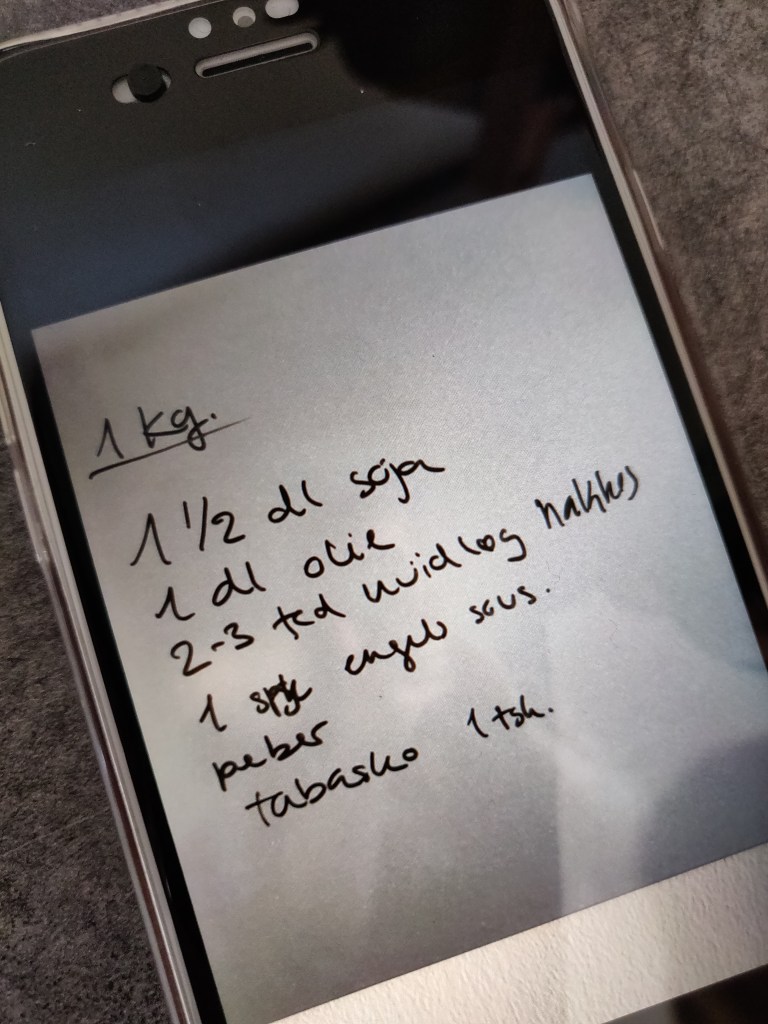 1 kg.
1 1/2 dl soja
1 dl olie
2-3 fed hvidløg hakkes
1 spsk engels sovs.
peber
tabasko 1 tsk.